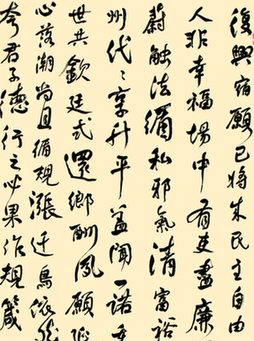 復興宿願已將成民主自由
人非幸福場中有生盡廉
蔚触法绳私邪氣清富裕
州代代享升平盖聞一诺重
世共欽廷式還鄉酬夙願
心落潮尚且循規漲迁鳥依
今君子德行之必果作規箴